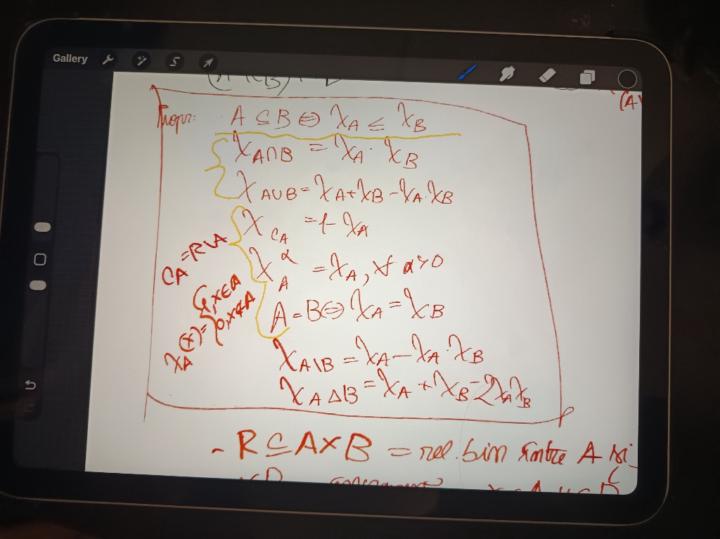 Gallery
Propr: A ⊆ B ⇔ χ_A ≤ χ_B
χ_A∩B = χ_A · χ_B
χ_A∪B = χ_A + χ_B - χ_A·χ_B
χ_C_A = 1 - χ_A
C_A = R\A
χ_A^α = χ_A, ∀ α>0
A = B ⇔ χ_A = χ_B
χ_A(x) = { 1, x∈A
0, x∉A
χ_A\B = χ_A - χ_A·χ_B
χ_A△B = χ_A + χ_B - 2χ_Aχ_B
- R ⊆ A×B = rel. bin între A și